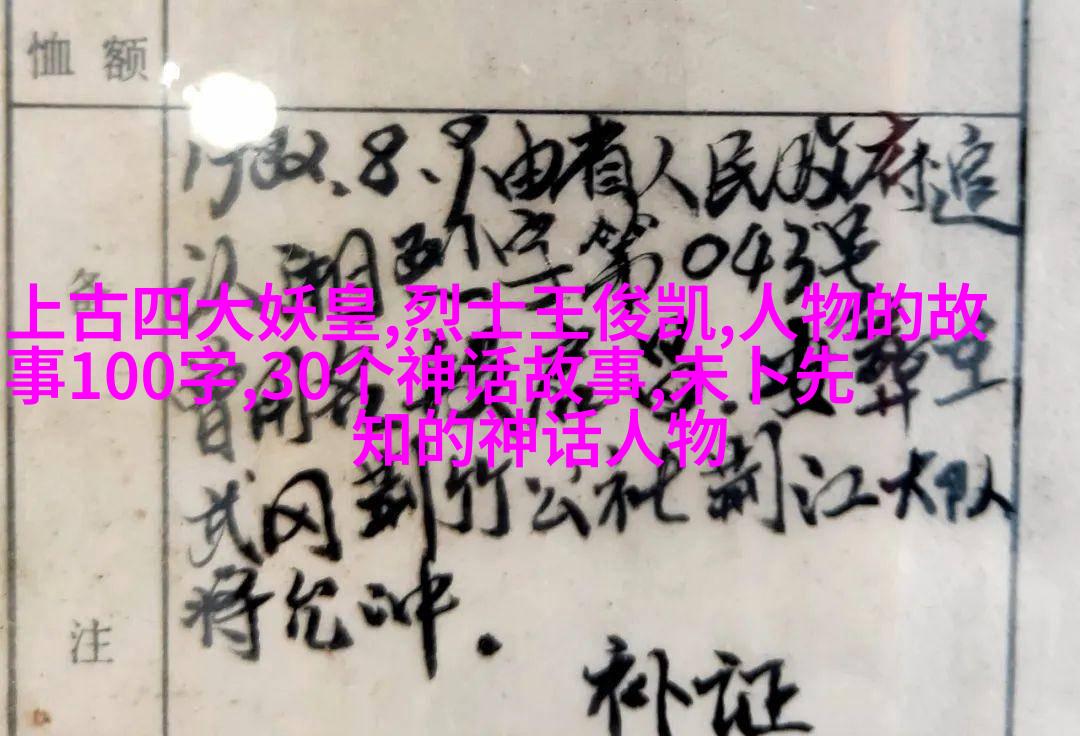 恤 额
1982.8.9由省人民政府追
认 湘烈字第043号
备
上古四大妖皇,烈士王俊凯,人物的故
事100字,30个神话故事,未卜先
知的神话人物
武冈荆竹公社荆江大队
蒋允冲.
注
补证